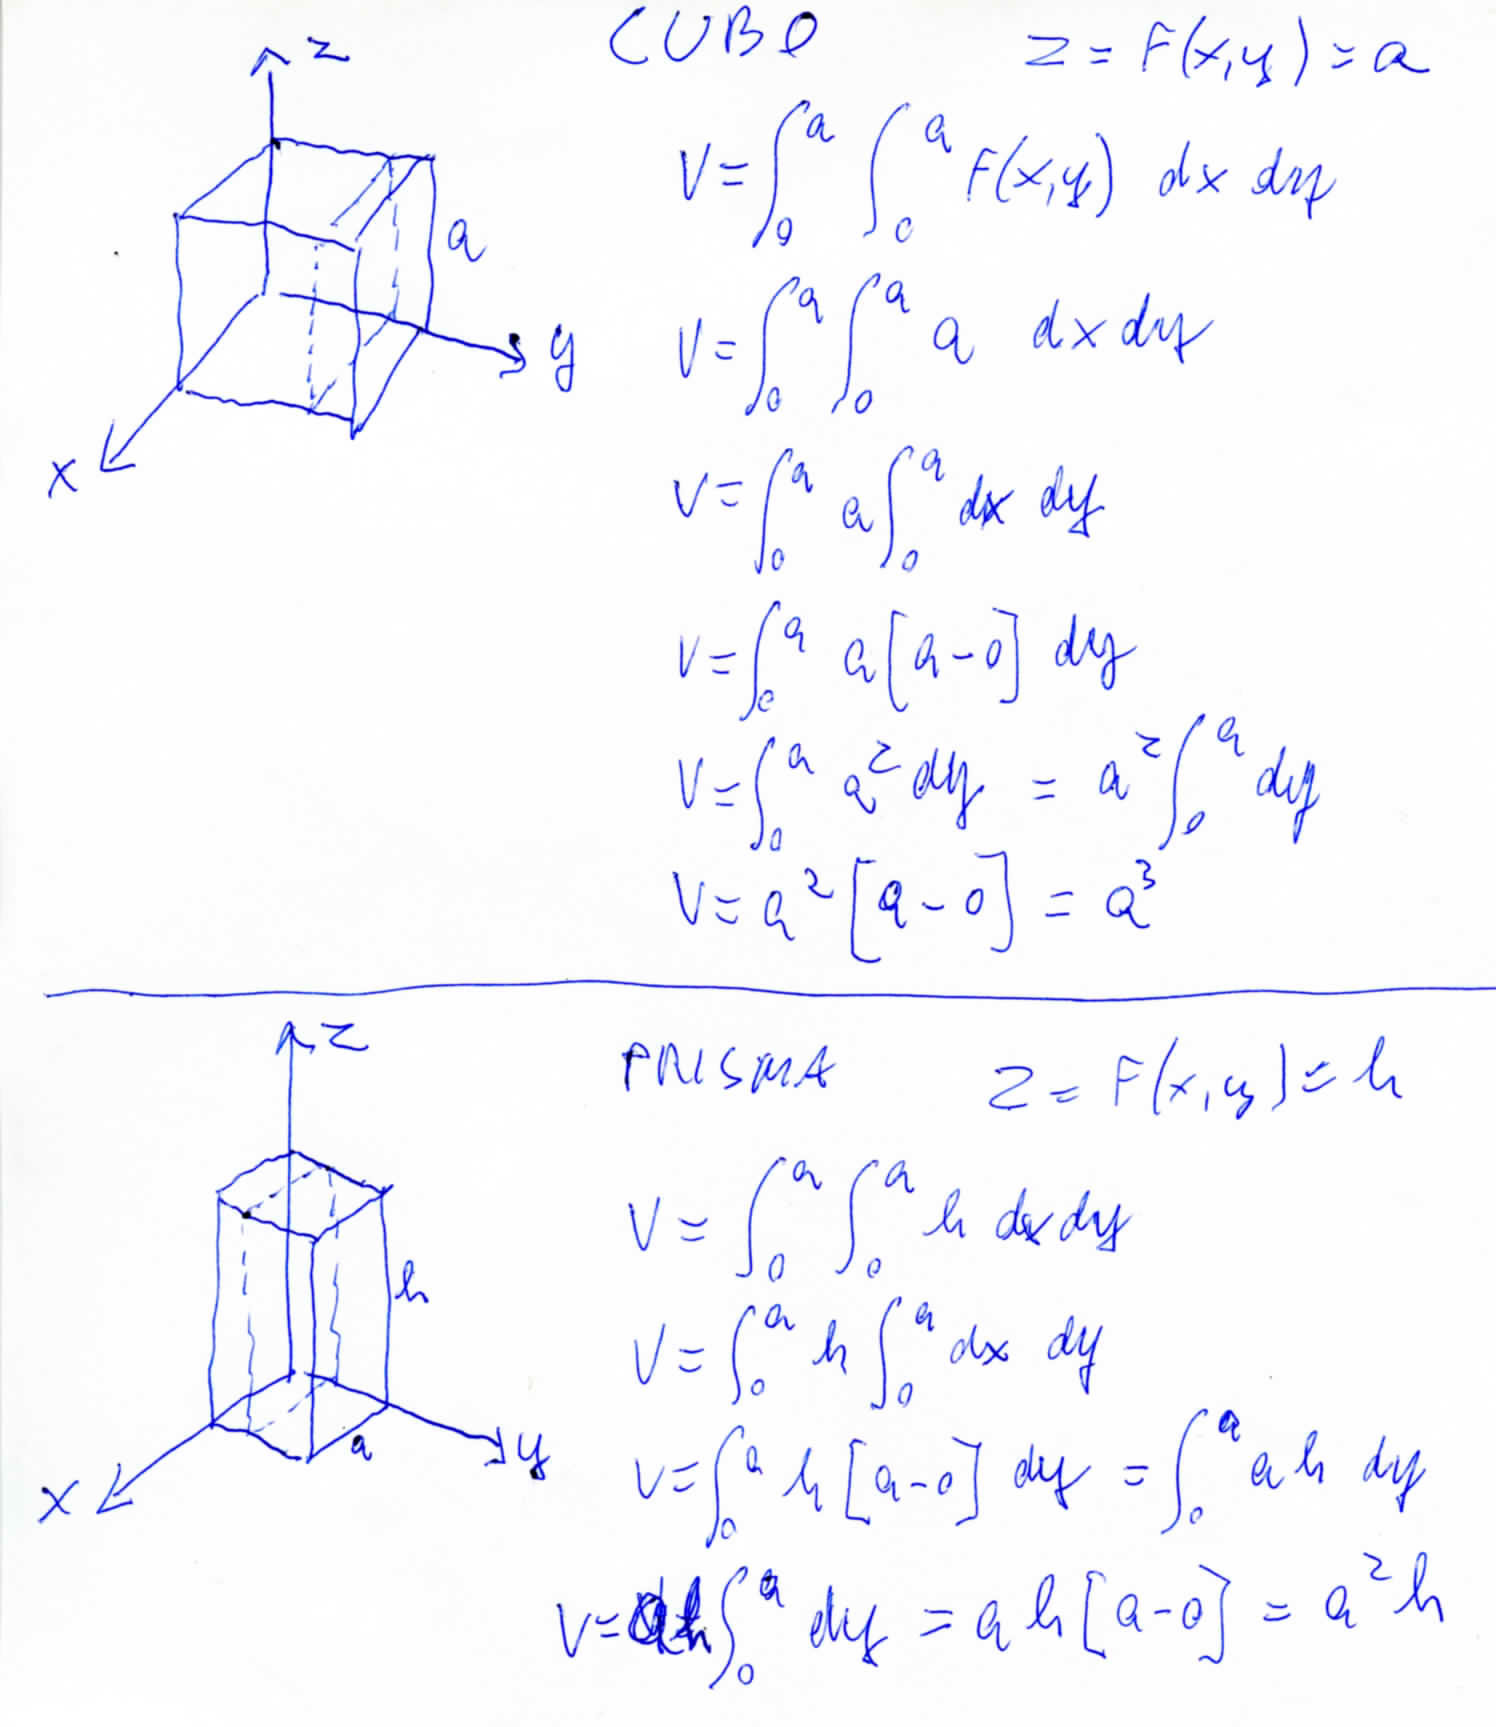 CUBO z = F(x,y) = a
z
V = ∫₀ᵃ ∫₀ᵃ F(x,y) dx dy
a
V = ∫₀ᵃ ∫₀ᵃ a dx dy
y
x
V = ∫₀ᵃ a ∫₀ᵃ dx dy
V = ∫₀ᵃ a [a-0] dy
V = ∫₀ᵃ a² dy = a² ∫₀ᵃ dy
V = a² [a-0] = a³
z
PRISMA z = F(x,y) = h
V = ∫₀ᵃ ∫₀ᵃ h dx dy
h
V = ∫₀ᵃ h ∫₀ᵃ dx dy
a
y
x
V = ∫₀ᵃ h [a-0] dy = ∫₀ᵃ a h dy
V = ah ∫₀ᵃ dy = a h [a-0] = a² h